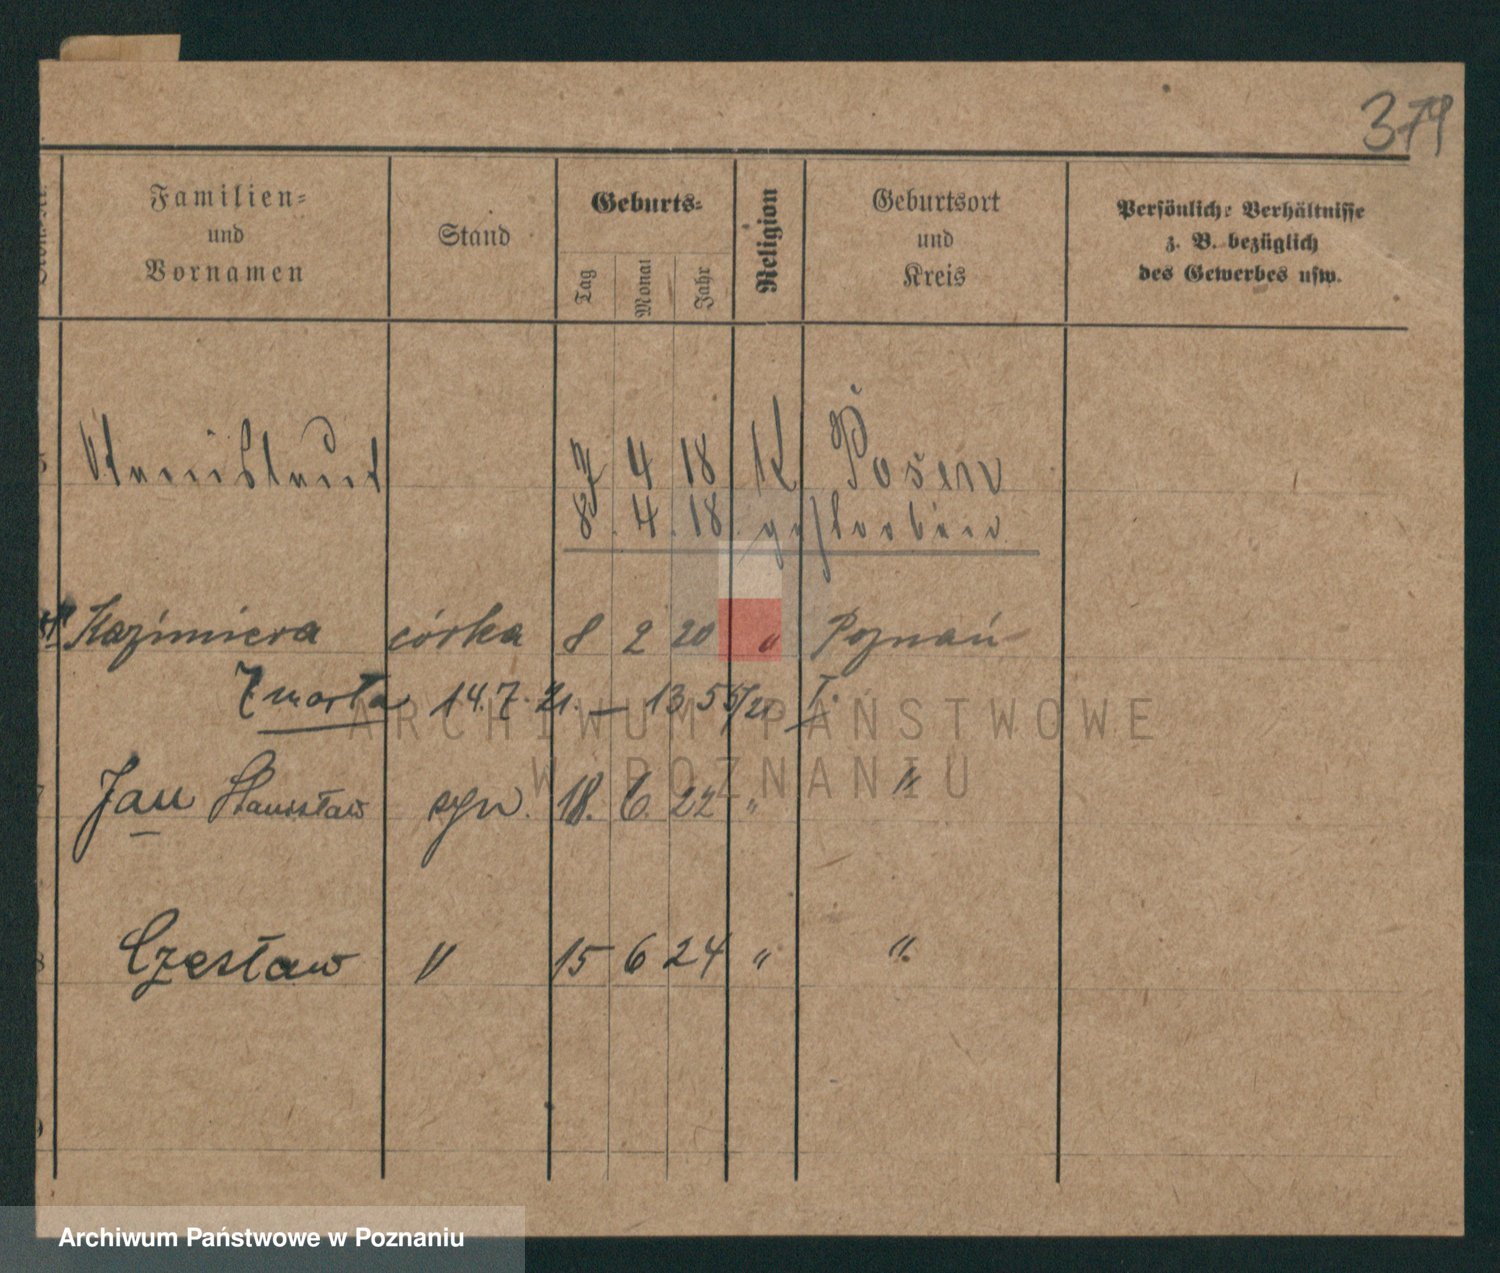 379
Familien=
und
Vornamen
Stand
Geburts=
Tag
Monat
Jahr
Religion
Geburtsort
und
Kreis
Persönliche Verhältnisse
z. B. bezüglich
des Gewerbes usw.
7 4 18 K Posen
8. 4. 18 gestorben
Kazimiera córka 8 2 20 " Poznań
Zmarła 14.7.21. — 1355/21 I.
Jan Stanisław syn. 18. 6. 22 " "
Czesław " 15 6 24 " "
ARCHIWUM PAŃSTWOWE
W POZNANIU
Archiwum Państwowe w Poznaniu